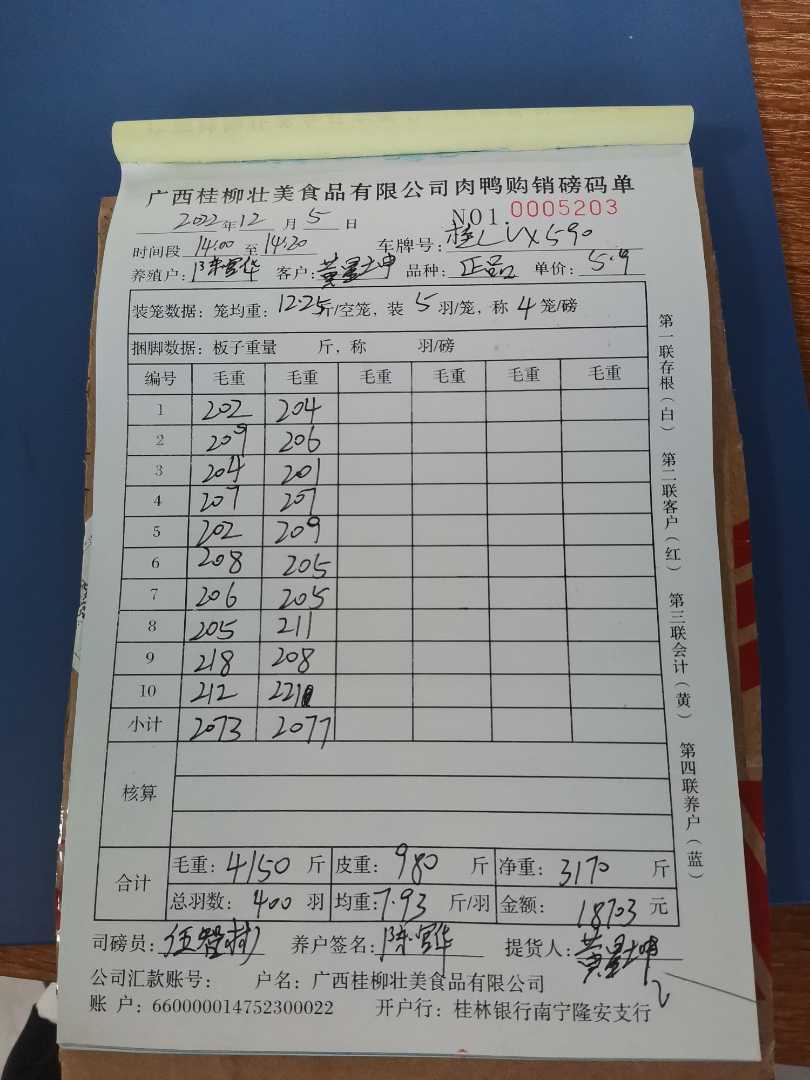 广西桂柳壮美食品有限公司肉鸭购销磅码单
2022年12月5日 NO1. 0005203
时间段 14:00 至 14:20 车牌号: 桂 590
养殖户: 陈宝华 客户: 黄 坤 品种: 正品 单价: 5.9
装笼数据: 笼均重: 12.25斤/空笼, 装 5 羽/笼, 称 4 笼/磅
捆脚数据: 板子重量 斤, 称 羽/磅
编号 毛重 毛重 毛重 毛重 毛重 毛重
1 202 204
2 209 206
3 204 201
4 207 207
5 202 209
6 208 205
7 206 205
8 205 211
9 218 208
10 212 221
小计 2073 2077
核算
合计 毛重: 4150 斤 皮重: 980 斤 净重: 3170 斤
总羽数: 400 羽 均重: 7.93 斤/羽 金额: 18703 元
司磅员: 伍智 养户签名: 陈宝华 提货人: 黄 坤
公司汇款账号: 户名: 广西桂柳壮美食品有限公司
账 户: 660000014752300022 开户行: 桂林银行南宁隆安支行
第一联存根(白) 第二联客户(红) 第三联会计(黄) 第四联养户(蓝)